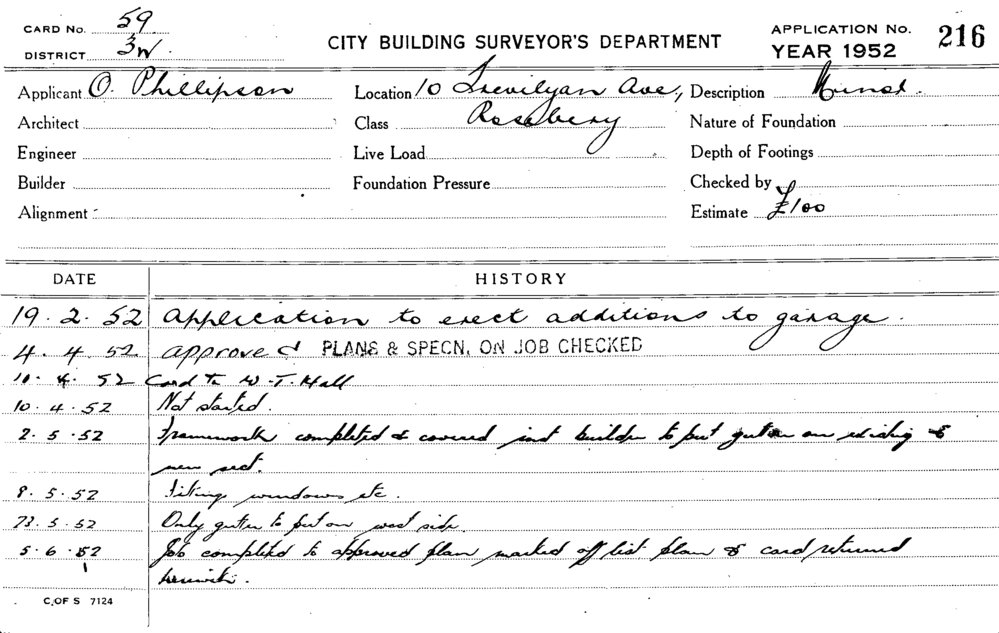 CARD No. 59
DISTRICT 3W.
CITY BUILDING SURVEYOR'S DEPARTMENT
APPLICATION No. 216
YEAR 1952
Applicant O. Phillipson
Location 10 Trevilyan Ave,
Description
Architect
Class Rosebery
Nature of Foundation
Engineer
Live Load
Depth of Footings
Builder
Foundation Pressure
Checked by
Alignment
Estimate £100
DATE HISTORY
19.2.52 Application to erect additions to garage.
4.4.52 approved PLANS & SPECN. ON JOB CHECKED
10.4.52 Card to W.T. Hall
10.4.52 Not started.
2.5.52 Framework completed & covered inst builder to put gutter on existing &
new sect.
8.5.52 Fixing windows etc.
23.5.52 Only gutter to put on west side.
5.6.52 Job completed to approved plan marked off list plan & card returned
herewith.
C. OF S 7124